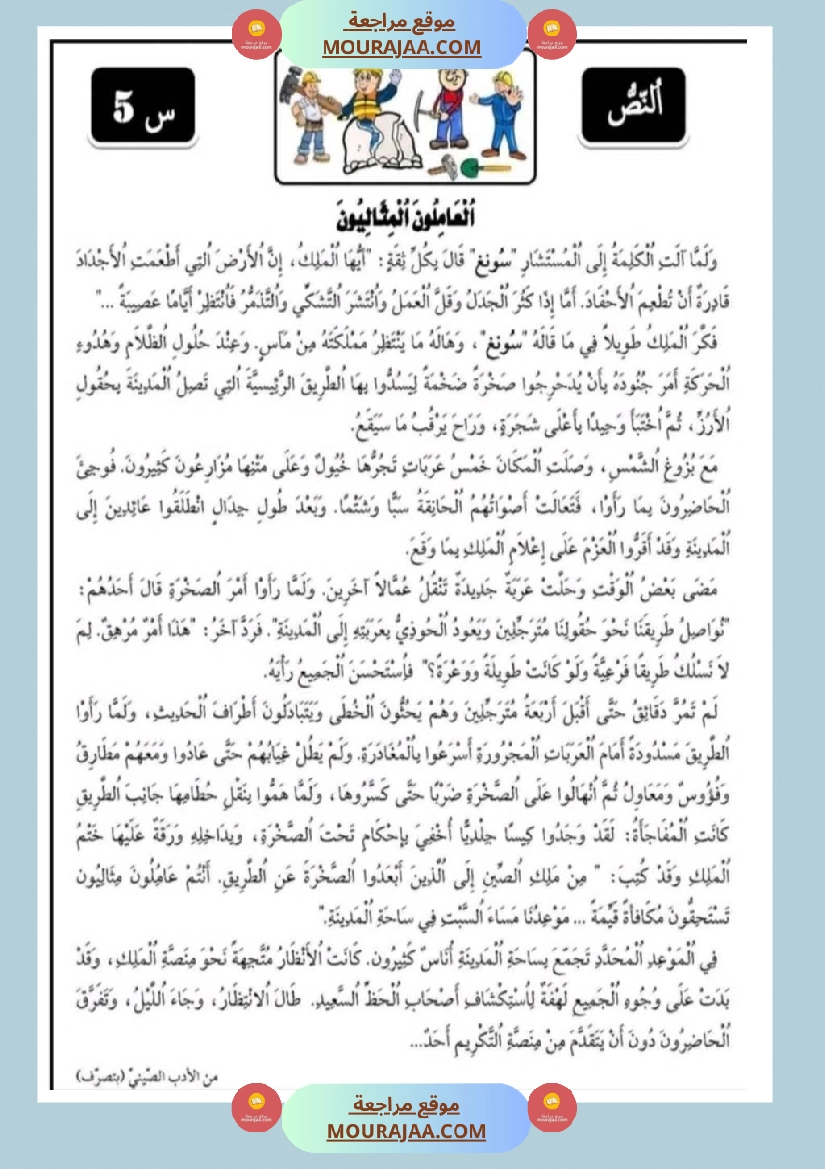 موقع مراجعة
MOURAJAA.COM
اُلنّصُّ
س 5
اُلْعَامِلُونَ اُلْمِثَالِيُونَ
وَلَمَّا آلَتِ اُلْكَلِمَةُ إِلَى اُلْمُسْتَشَارِ "سُونغ" قَالَ بِكُلِّ ثِقَةٍ: "أَيُّهَا اُلْمَلِكُ، إِنَّ اُلأَرْضَ اُلتِي أَطْعَمَتِ اُلأَجْدَادَ
قَادِرَةٌ أَنْ تُطْعِمَ اُلأَحْفَادَ. أَمَّا إِذَا كَثُرَ اُلْجَدَلُ وَقَلَّ اُلْعَمَلُ وَاُنْتَشَرَ اُلتَّشَكِّي وَاُلتَّذَمُّرُ فَاُنْتَظِرْ أَيَّامًا عَصِيبَةً ..."
فَكَّرَ اُلْمَلِكُ طَوِيلاً فِي مَا قَالَهُ "سُونغ"، وَهَالَهُ مَا يَنْتَظِرُ مَمْلَكَتَهُ مِنْ مَآسٍ. وَعِنْدَ حُلُولِ اُلظَّلاَمِ وَهُدُوءِ
اُلْحَرَكَةِ أَمَرَ جُنُودَهُ بِأَنْ يُدَحْرِجُوا صَخْرَةً ضَخْمَةً لِيَسُدُّوا بِهَا اُلطَّرِيقَ اُلرَّئِيسِيَّةَ اُلتِي تَصِلُ اُلْمَدِينَةَ بِحُقُولِ
اُلأَرُزِّ، ثُمَّ اُخْتَبَأَ وَحِيدًا بِأَعْلَى شَجَرَةٍ، وَرَاحَ يَرْقُبُ مَا سَيَقَعُ.
مَعَ بُزُوغِ اُلشَّمْسِ، وَصَلَتِ اُلْمَكَانَ خَمْسُ عَرَبَاتٍ تَجُرُّهَا خُيُولٌ وَعَلَى مَتْنِهَا مُزَارِعُونَ كَثِيرُونَ. فُوجِئَ
اُلْحَاضِرُونَ بِمَا رَأَوْا، فَتَعَالَتْ أَصْوَاتُهُمُ اُلْحَانِقَةُ سَبًّا وَشَتْمًا. وَبَعْدَ طُولِ جِدَالٍ اُنْطَلَقُوا عَائِدِينَ إِلَى
اُلْمَدِينَةِ وَقَدْ أَقَرُّوا اُلْعَزْمَ عَلَى إِعْلاَمِ اُلْمَلِكِ بِمَا وَقَعَ.
مَضَى بَعْضُ اُلْوَقْتِ وَحَلَّتْ عَرَبَةٌ جَدِيدَةٌ تَنْقُلُ عُمَّالاً آخَرِينَ. وَلَمَّا رَأَوْا أَمْرَ اُلصَخْرَةِ قَالَ أَحَدُهُمْ:
"نُوَاصِلُ طَرِيقَنَا نَحْوَ حُقُولِنَا مُتَرَجِّلِينَ وَيَعُودُ اُلْحُوذِيُّ بِعَرَبَتِهِ إِلَى اُلْمَدِينَةِ". فَرَدَّ آخَرُ: "هَذَا أَمْرٌ مُرْهِقٌ. لِمَ
لاَ نَسْلُكُ طَرِيقًا فَرْعِيَّةً وَلَوْ كَانَتْ طَوِيلَةً وَوَعْرَةً؟" فَاُسْتَحْسَنَ اُلْجَمِيعُ رَأْيَهُ.
لَمْ تَمُرَّ دَقَائِقُ حَتَّى أَقْبَلَ أَرْبَعَةُ مُتَرَجِّلِينَ وَهُمْ يَحُثُّونَ اُلْخُطَى وَيَتَبَادَلُونَ أَطْرَافَ اُلْحَدِيثِ، وَلَمَّا رَأَوْا
اُلطَّرِيقَ مَسْدُودَةً أَمَامَ اُلْعَرَبَاتِ اُلْمَجْرُورَةِ أَسْرَعُوا بِاُلْمُغَادَرَةِ. وَلَمْ يَطُلْ غِيَابُهُمْ حَتَّى عَادُوا وَمَعَهُمْ مَطَارِقُ
وَفُؤُوسٌ وَمَعَاوِلُ ثُمَّ اُنْهَالُوا عَلَى اُلصَّخْرَةِ ضَرْبًا حَتَّى كَسَّرُوهَا، وَلَمَّا هَمُّوا بِنَقْلِ حُطَامِهَا جَانِبَ اُلطَّرِيقِ
كَانَتِ اُلْمُفَاجَأَةُ: لَقَدْ وَجَدُوا كِيسًا جِلْدِيًّا أُخْفِيَ بِإِحْكَامٍ تَحْتَ اُلصَّخْرَةِ، وَبِدَاخِلِهِ وَرَقَةٌ عَلَيْهَا خَتْمُ
اُلْمَلِكِ وَقَدْ كُتِبَ: " مِنْ مَلِكِ اُلصِّينِ إِلَى اُلَّذِينَ أَبْعَدُوا اُلصَّخْرَةَ عَنِ اُلطَّرِيقِ. أَنْتُمْ عَامِلُونَ مِثَالِيُون
تَسْتَحِقُّونَ مُكَافَأَةً قَيِّمَةً ... مَوْعِدُنَا مَسَاءَ اُلسَّبْتِ فِي سَاحَةِ اُلْمَدِينَةِ."
فِي اُلْمَوْعِدِ اُلْمُحَدَّدِ تَجَمَّعَ بِسَاحَةِ اُلْمَدِينَةِ أُنَاسٌ كَثِيرُون. كَانَتْ اُلأَنْظَارُ مُتَّجِهَةً نَحْوَ مِنَصَّةِ اُلْمَلِكِ، وَقَدْ
بَدَتْ عَلَى وُجُوهِ اُلْجَمِيعِ لَهْفَةٌ لِاُسْتِكْشَافِ أَصْحَابِ اُلْحَظِّ اُلسَّعِيدِ. طَالَ اُلانْتِظَارُ، وَجَاءَ اُللَّيْلُ، وَتَفَرَّقَ
اُلْحَاضِرُونَ دُونَ أَنْ يَتَقَدَّمَ مِنْ مِنَصَّةِ اُلتَّكْرِيمِ أَحَدٌ...
من الأدب الصّينيّ (بتصرّف)
موقع مراجعة
MOURAJAA.COM